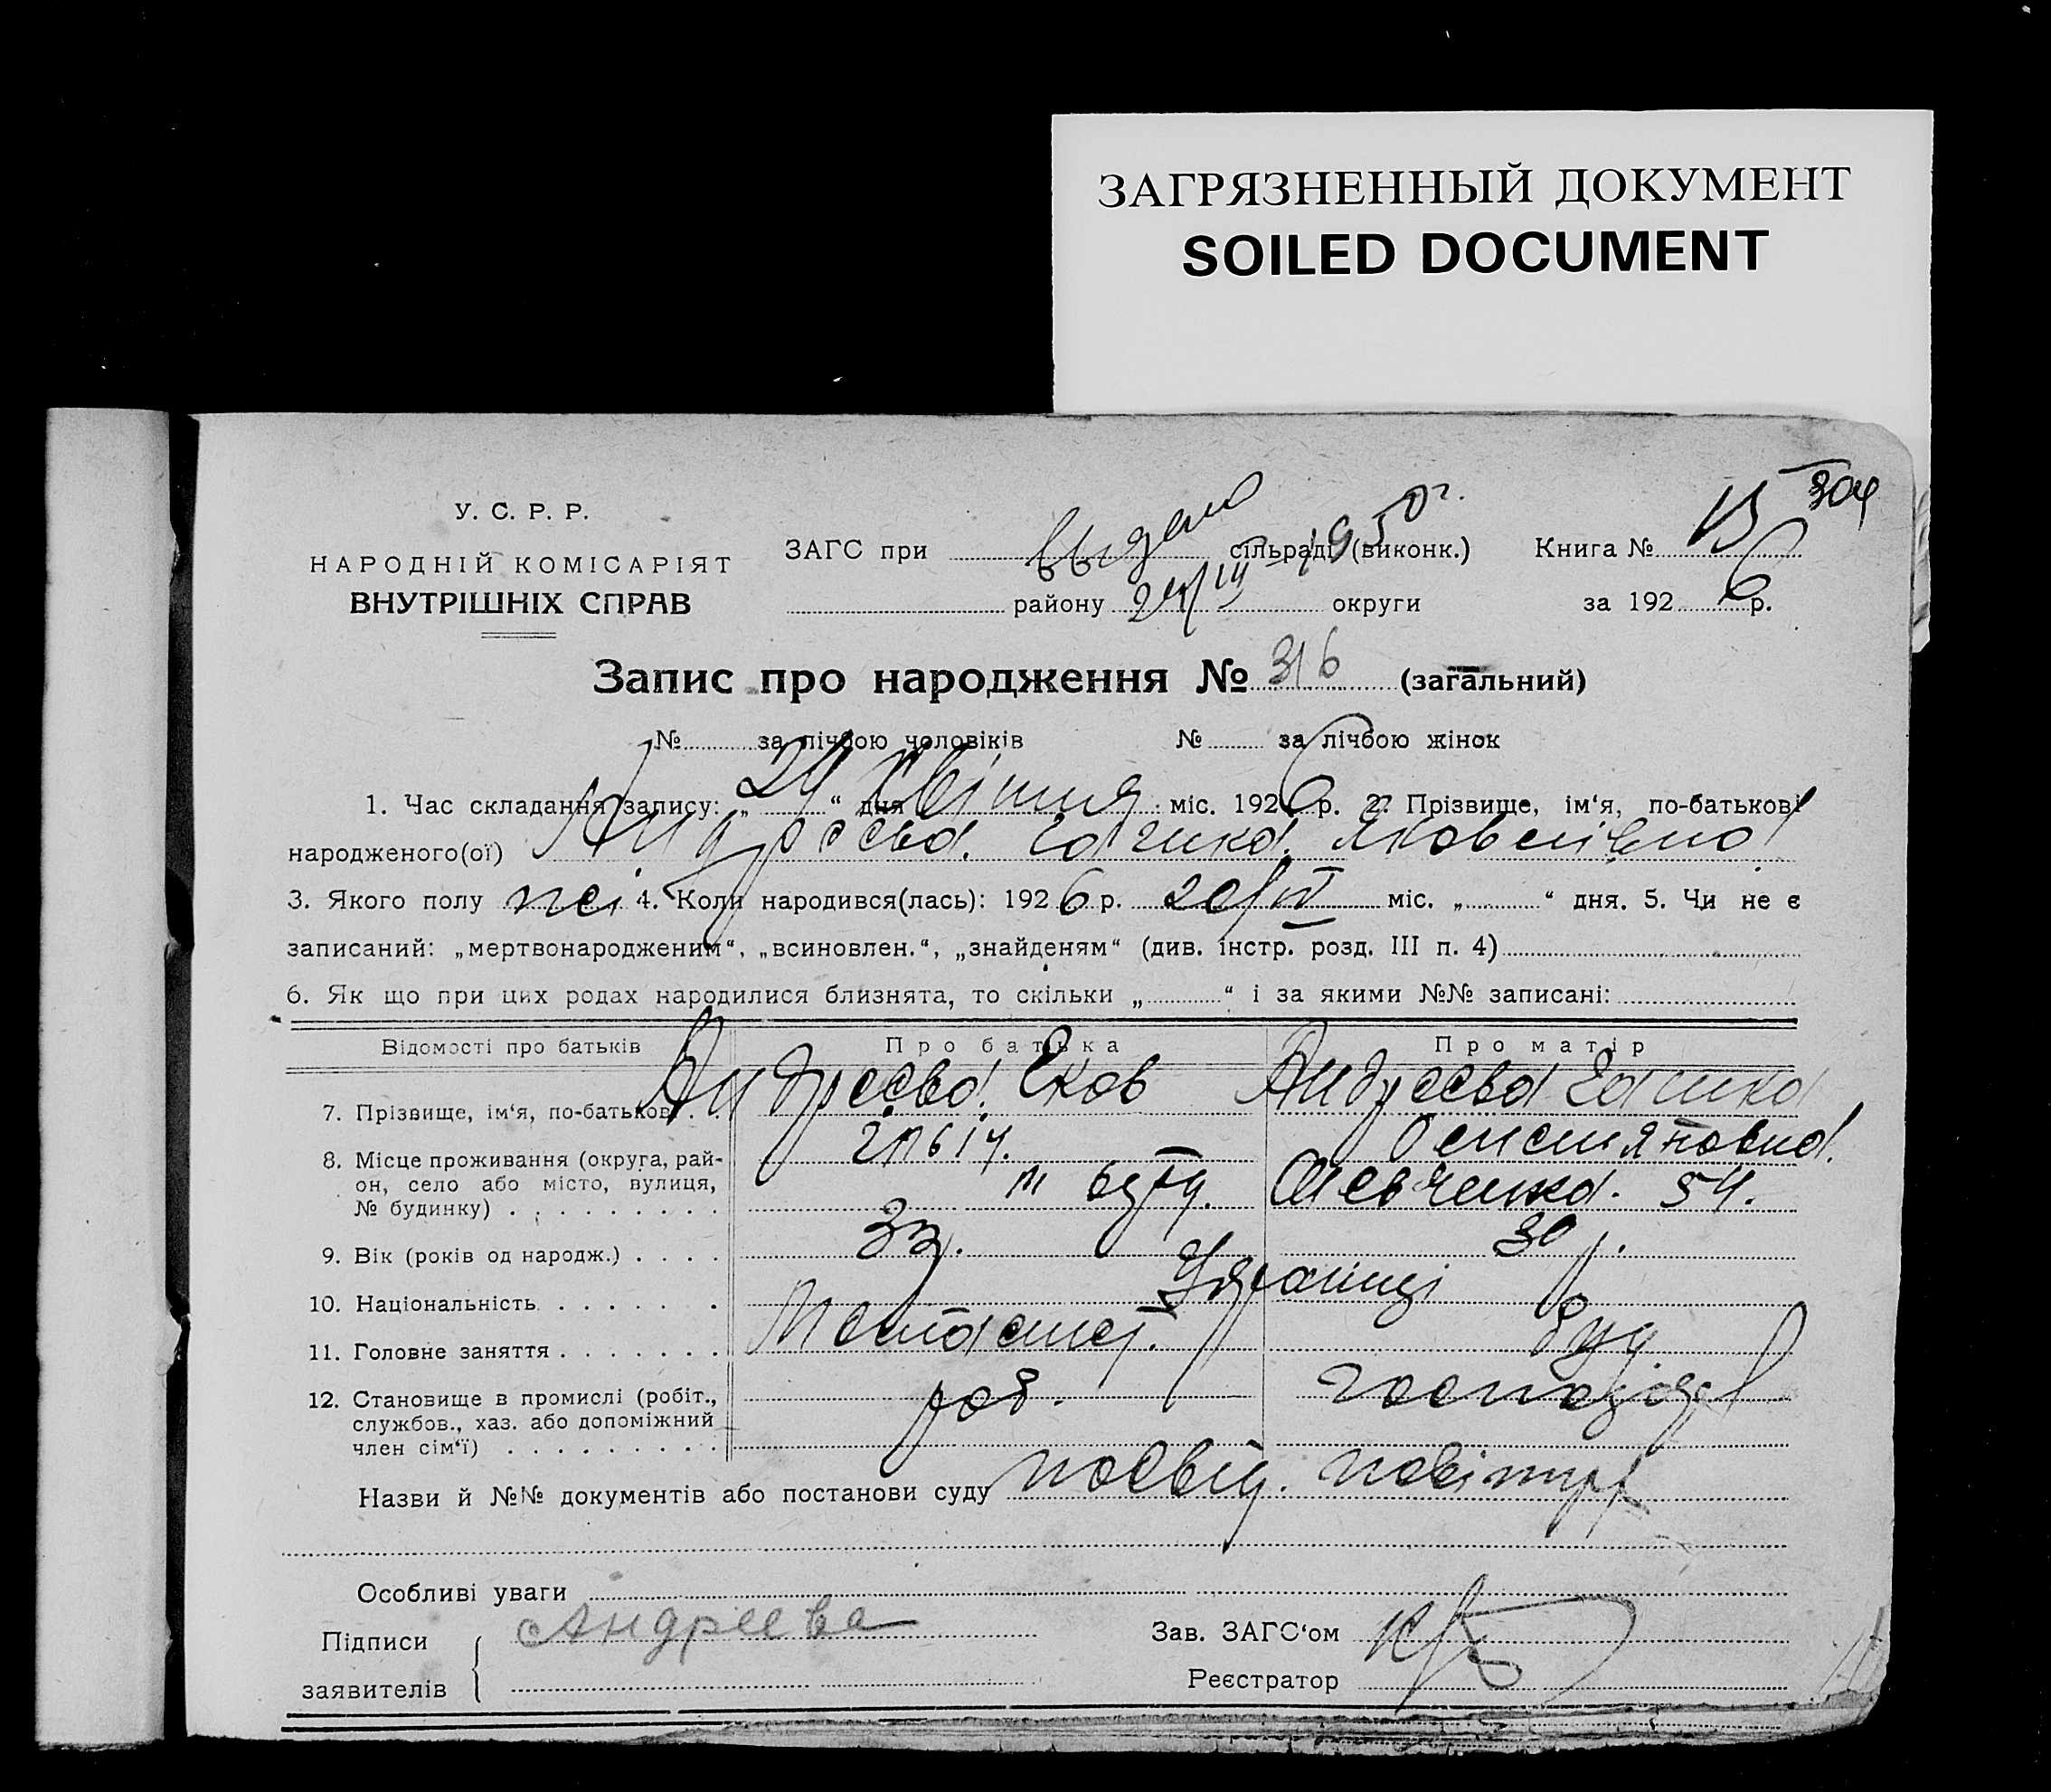 ЗАГРЯЗНЕННЫЙ ДОКУМЕНТ
SOILED DOCUMENT
304
У. С. Р. Р.
НАРОДНІЙ КОМІСАРІЯТ
ВНУТРІШНІХ СПРАВ
ЗАГС при выдано сільраді (виконк.) 1950 г. Книга № 13
району округи за 1926 р.
Запис про народження № 316 (загальний)
№ за лічбою чоловіків № за лічбою жінок
1. Час складання запису: „ 24 “ дня Квітня міс. 1926 р. 2. Прізвище, ім‘я, по-батькові
народженого(ої) Андреєва Яковлівна
3. Якого полу жі 4. Коли народився(лась): 1926 р. 20/IV міс. „ “ дня. 5. Чи не є
записаний: „мертвонародженим“, „всиновлен.“, „знайденям“ (див. інстр. розд. III п. 4)
6. Як що при цих родах народилися близнята, то скільки „ “ і за якими №№ записані:
Відомості про батьків Про батька Про матір
7. Прізвище, ім‘я, по-батькові Андреєва Яков Андреєва
8. Місце проживання (округа, рай-
он, село або місто, вулиця, Шевченка. 54.
№ будинку)
9. Вік (років од народж.) 33. 30 р.
10. Національність Українці
11. Головне заняття
12. Становище в промислі (робіт., роб. господар
службов., хаз. або допоміжний
член сім‘ї)
Назви й №№ документів або постанови суду посвід.
Особливі уваги
Підписи Андреева Зав. ЗАГС‘ом
заявителів Реєстратор